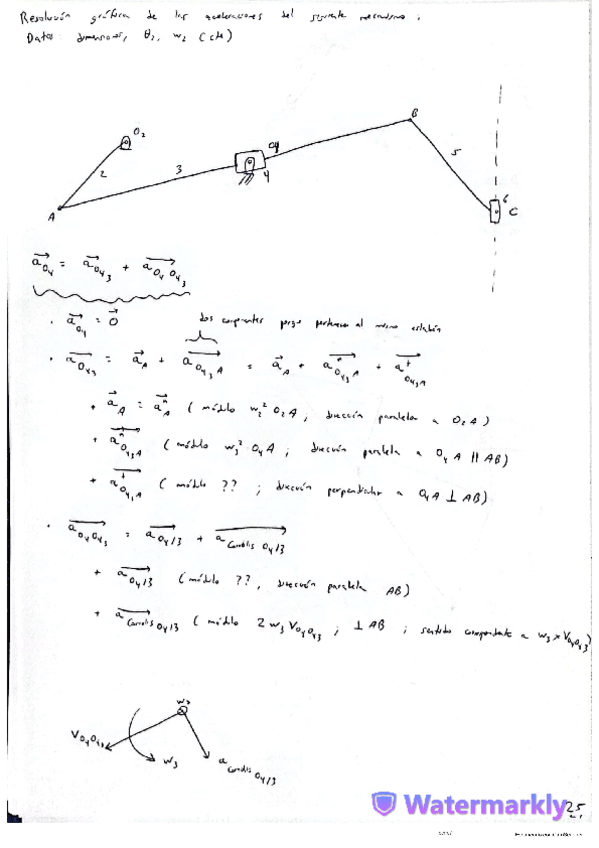 Resolución gráfica de las aceleraciones del siguiente mecanismo.
Datos: dimensiones, θ₂, w₂ (cte)
O₂
B
2
3
O₄
4
5
A
6
C
a⃗O₄ = a⃗O₄₃ + a⃗O₄O₄₃
· a⃗O₄ = 0⃗ dos componentes porque pertenecen al mismo eslabón
· a⃗O₄₃ = a⃗A + a⃗O₄₃A = a⃗A + a⃗ⁿO₄₃A + a⃗ᵗO₄₃A
+ a⃗A = a⃗ⁿA (módulo w₂² O₂A ; dirección paralela a O₂A)
+ a⃗ⁿO₄₃A (módulo w₃² O₄A ; dirección paralela a O₄A || AB)
+ a⃗ᵗO₄₃A (módulo ?? ; dirección perpendicular a O₄A ⊥ AB)
· a⃗O₄O₄₃ = a⃗O₄/3 + a⃗Coriolis O₄/3
+ a⃗O₄/3 (módulo ??, dirección paralela AB)
+ a⃗Coriolis O₄/3 (módulo 2 w₃ VO₄O₄₃ ; ⊥ AB ; sentido correspondiente a w₃ x VO₄O₄₃)
w₃
VO₄O₄₃
w₃
a Coriolis O₄/3
Watermarkly
25